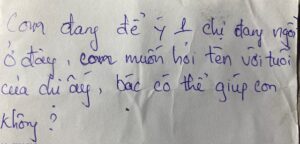 Com đang để ý 1 chị đang ngồi
ở đây, com muốn hỏi tên với tuổi
của chị ấy, bác có thể giúp con
không?